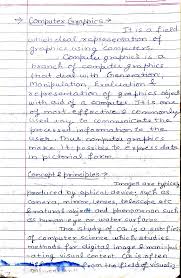 → Computer Graphics →
It is a field
which deal representation of
graphics using Computers.
Computer graphics is a
branch of computer graphics
that deal with Generation,
Manipulation Evaluation &
representation of graphics object
with aid of a computer. It is one
of most effective & commonly
used way to communicate the
processed information to the
user. Thus computer graphics
make it possible to express data
in pictorial form
Concept & principles →
Images are typically
produced by optical device, such as
camera, mirror, lenses, telescope etc
& natural object and phenomenon such
as human eye or water surface
The study of CG is a sub field
of computer science which studies
methods for digital & manipul
ating visual content CG is often
from the field of visually